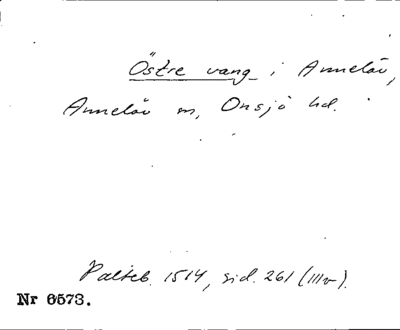 Östre vang i Annelöv,
Annelöv sn, Onsjö hd.
Palteb. 1514, sid. 261 (IIIv).
Nr 6573.